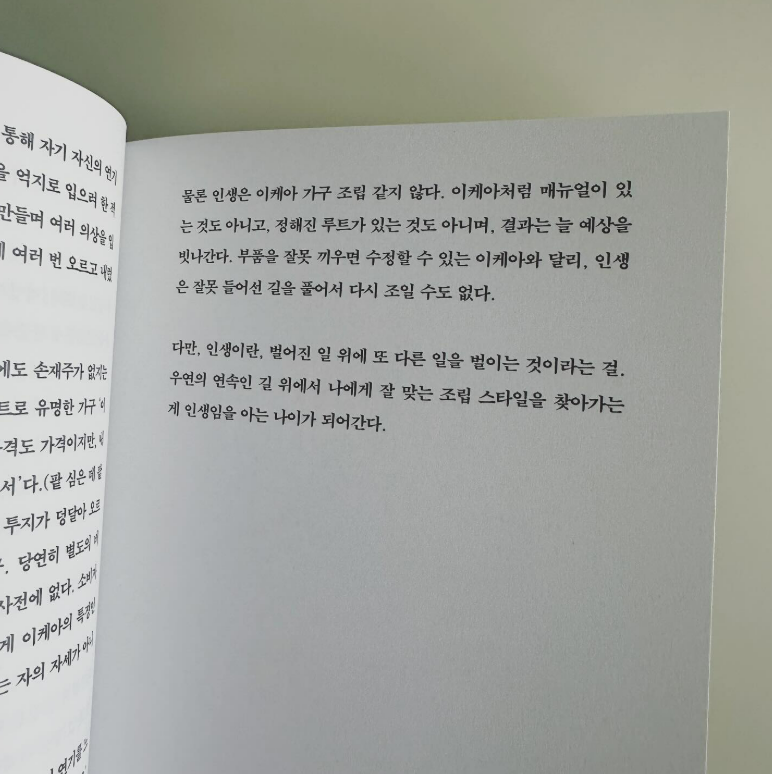 통해 자기 자신의 연기
을 억지로 입으려 한 적
만들며 여러 의상을 입
여러 번 오르고 내렸
에도 손재주가 없기는
트로 유명한 가구 '이
가격도 가격이지만,
서'다.(팥 심은 데 팥
투지가 덩달아 오르
당연히 별도의
사전에 없다. 소비자
게 이케아의 특징인
는 자의 자세가 아니
연기를
물론 인생은 이케아 가구 조립 같지 않다. 이케아처럼 매뉴얼이 있
는 것도 아니고, 정해진 루트가 있는 것도 아니며, 결과는 늘 예상을
빗나간다. 부품을 잘못 끼우면 수정할 수 있는 이케아와 달리, 인생
은 잘못 들어선 길을 풀어서 다시 조일 수도 없다.
다만, 인생이란, 벌어진 일 위에 또 다른 일을 벌이는 것이라는 걸.
우연의 연속인 길 위에서 나에게 잘 맞는 조립 스타일을 찾아가는
게 인생임을 아는 나이가 되어간다.